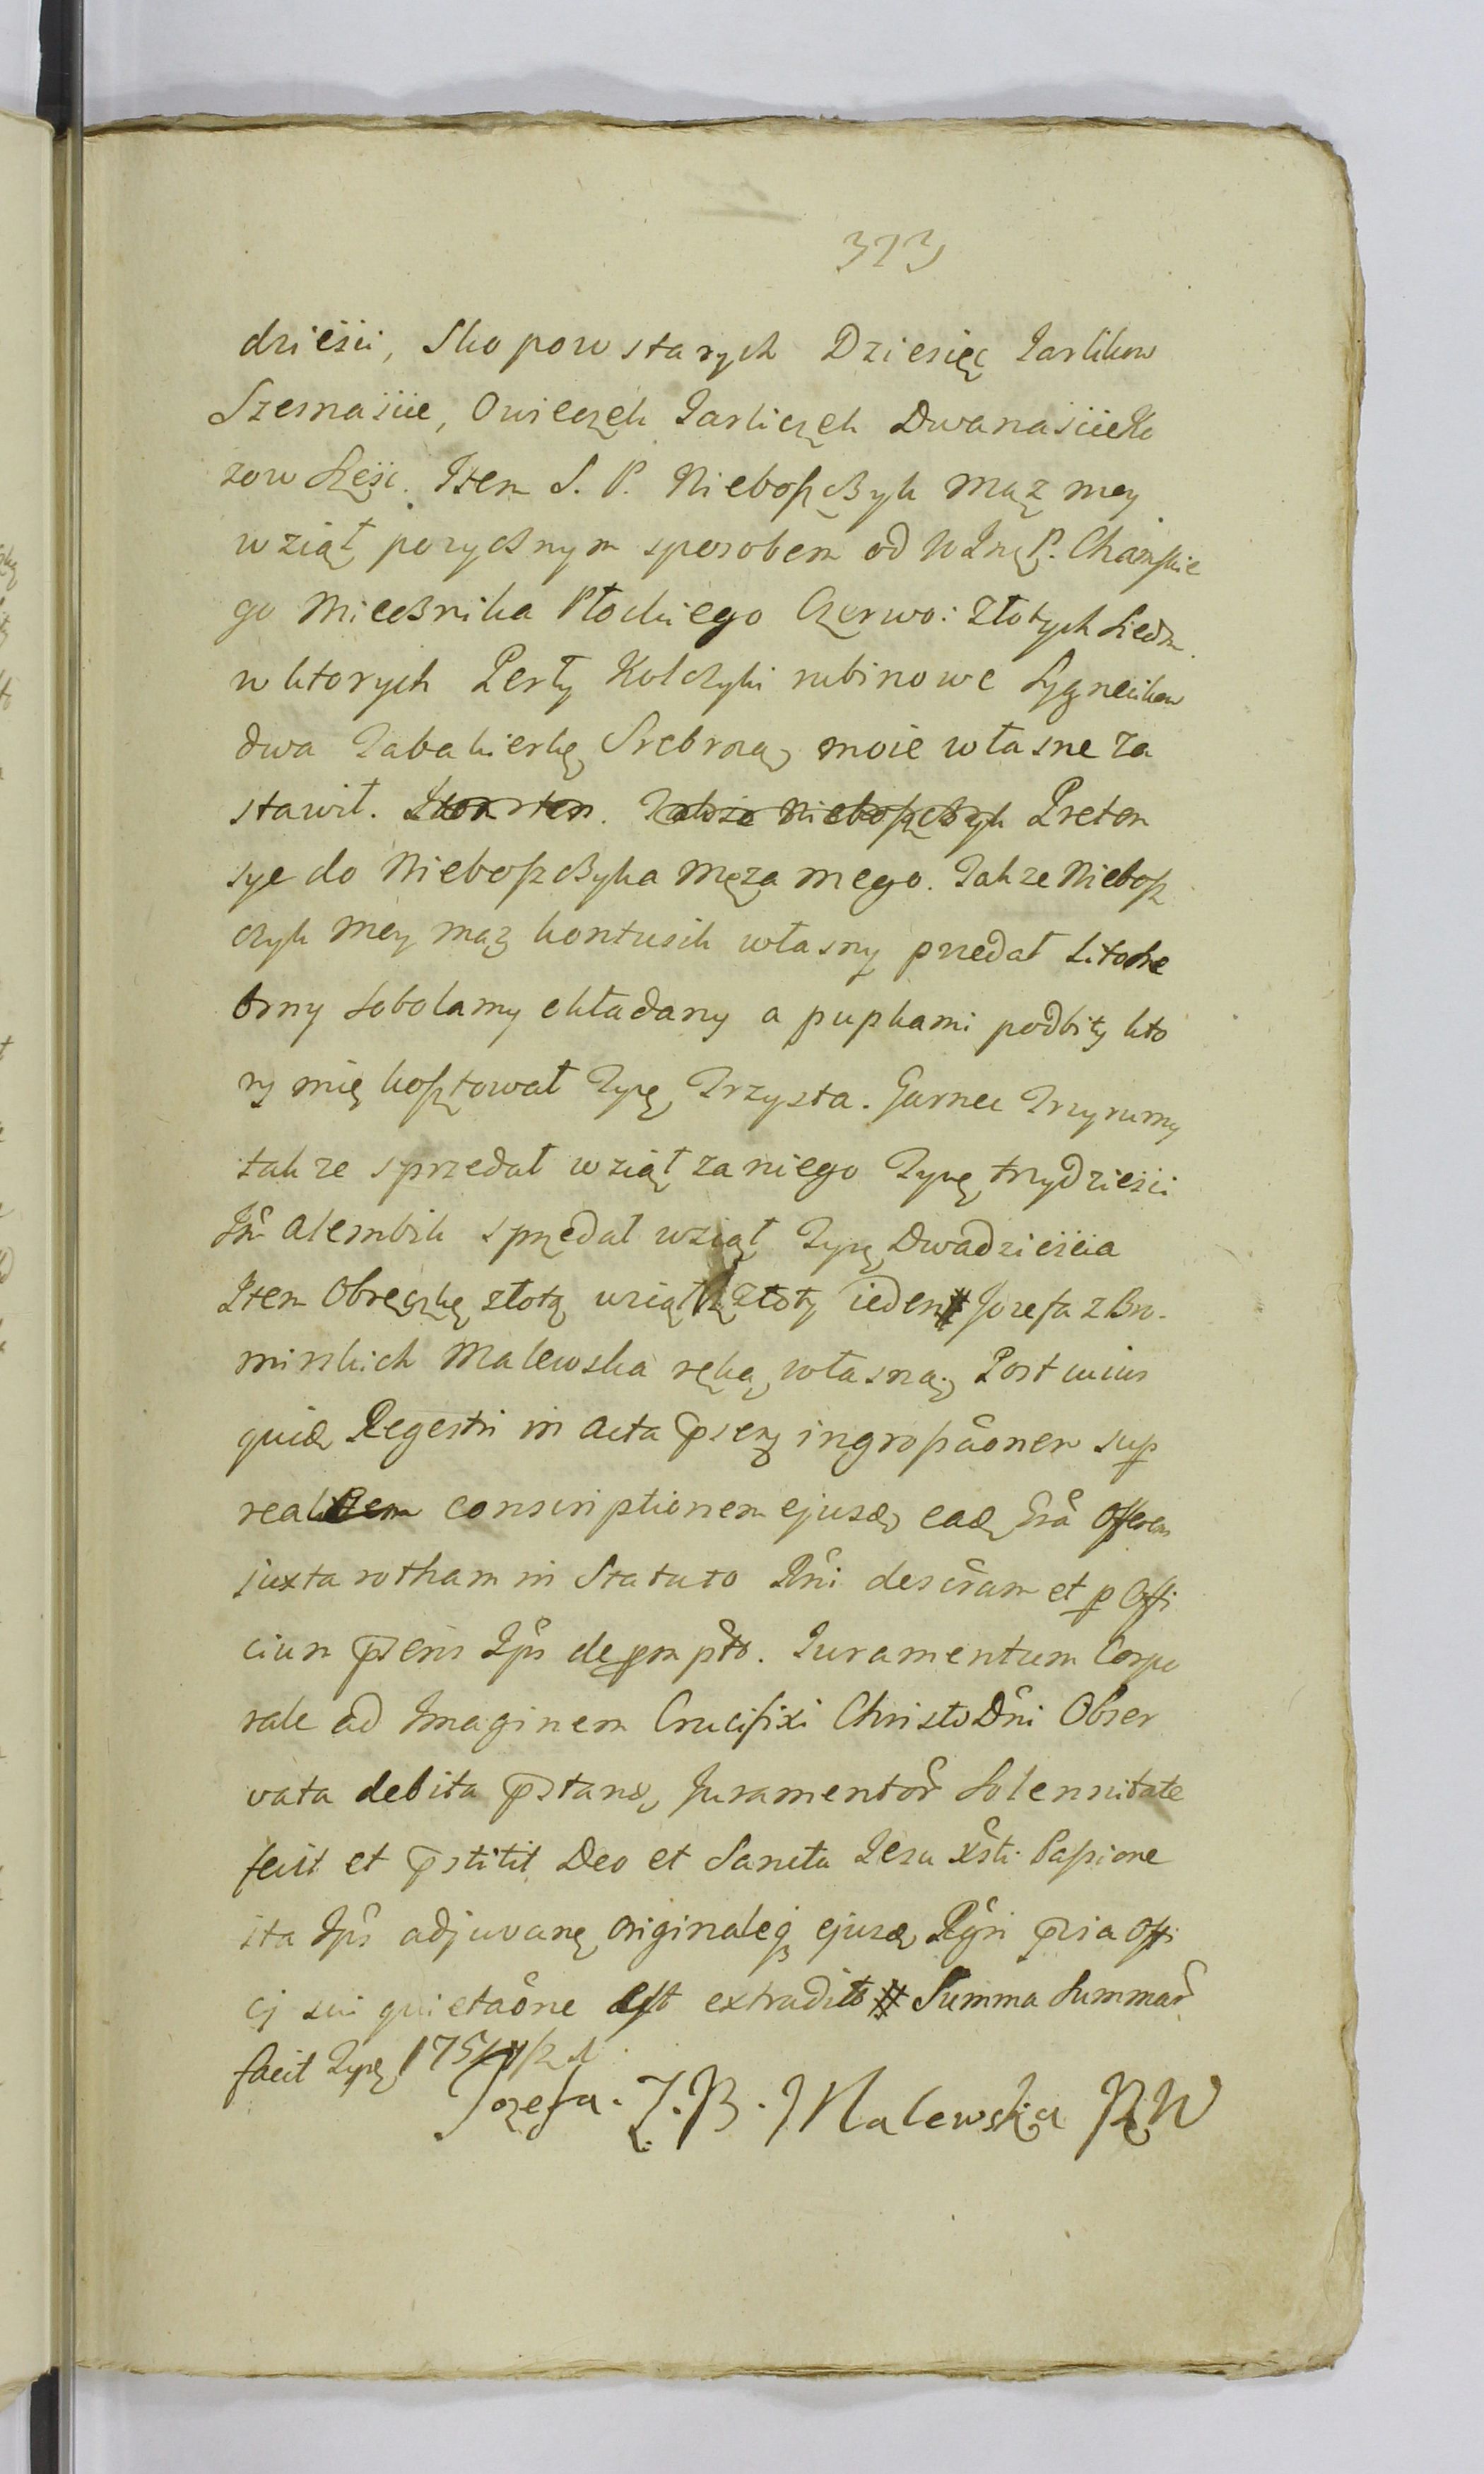 323
dzieści, Skopow starych Dziesięc Jarlikow
Szesnaście, Owieczek Jarliczek Dwanaście Ko
zow Sześc. Item S. P. Nieboszczyk mąz moy
wziął pozycznym sposobem od P. Chamskie
go Miecznika Płockiego Czerwo: Złotych siedm
w ktorych Perły Kolczyki rubinowe Sygnecikow
dwa Tabakierkę Srebrną moie własne za
stawił. Preten
sye do Nieboszczyka męza mego. Takze Niebosz
czyk moy mąz kontusik własny przedał Litosre
brny sobolamy okładany a pupkami podbity kto
ry mię kosztował Tynf Trzysta. Garnec
takze sprzedał wziął za niego Tynf trzydzieści
Itm alembik sprzedał wziął Tynf Dwadzieścia
Item Obręczkę złotą wziął złoty ieden # Jozefa z Bro-
minskich Malewska ręką własną. Post cuius
quid Regestri in acta psens ingrossaonen sup
realitem conscriptionem ejusd ead Gra Offerens
juxta rotham in Statuto Rni descram et p Offi
cium psens Ips depmpto. Juramentum Corpo
rale ad Imaginem Crucifixi Christo Dni Obser
vata debita pstand Juramentor Solennitate
fecit et pstitit Deo et Sancta Jesu xsti Passione
ita Ips adjuvan originaleq ejusd Rgri psia Offi
cj sui quietaone est extradit # Summa Summar
facit Tynf
Jozefa. Z. B. Malewska RW